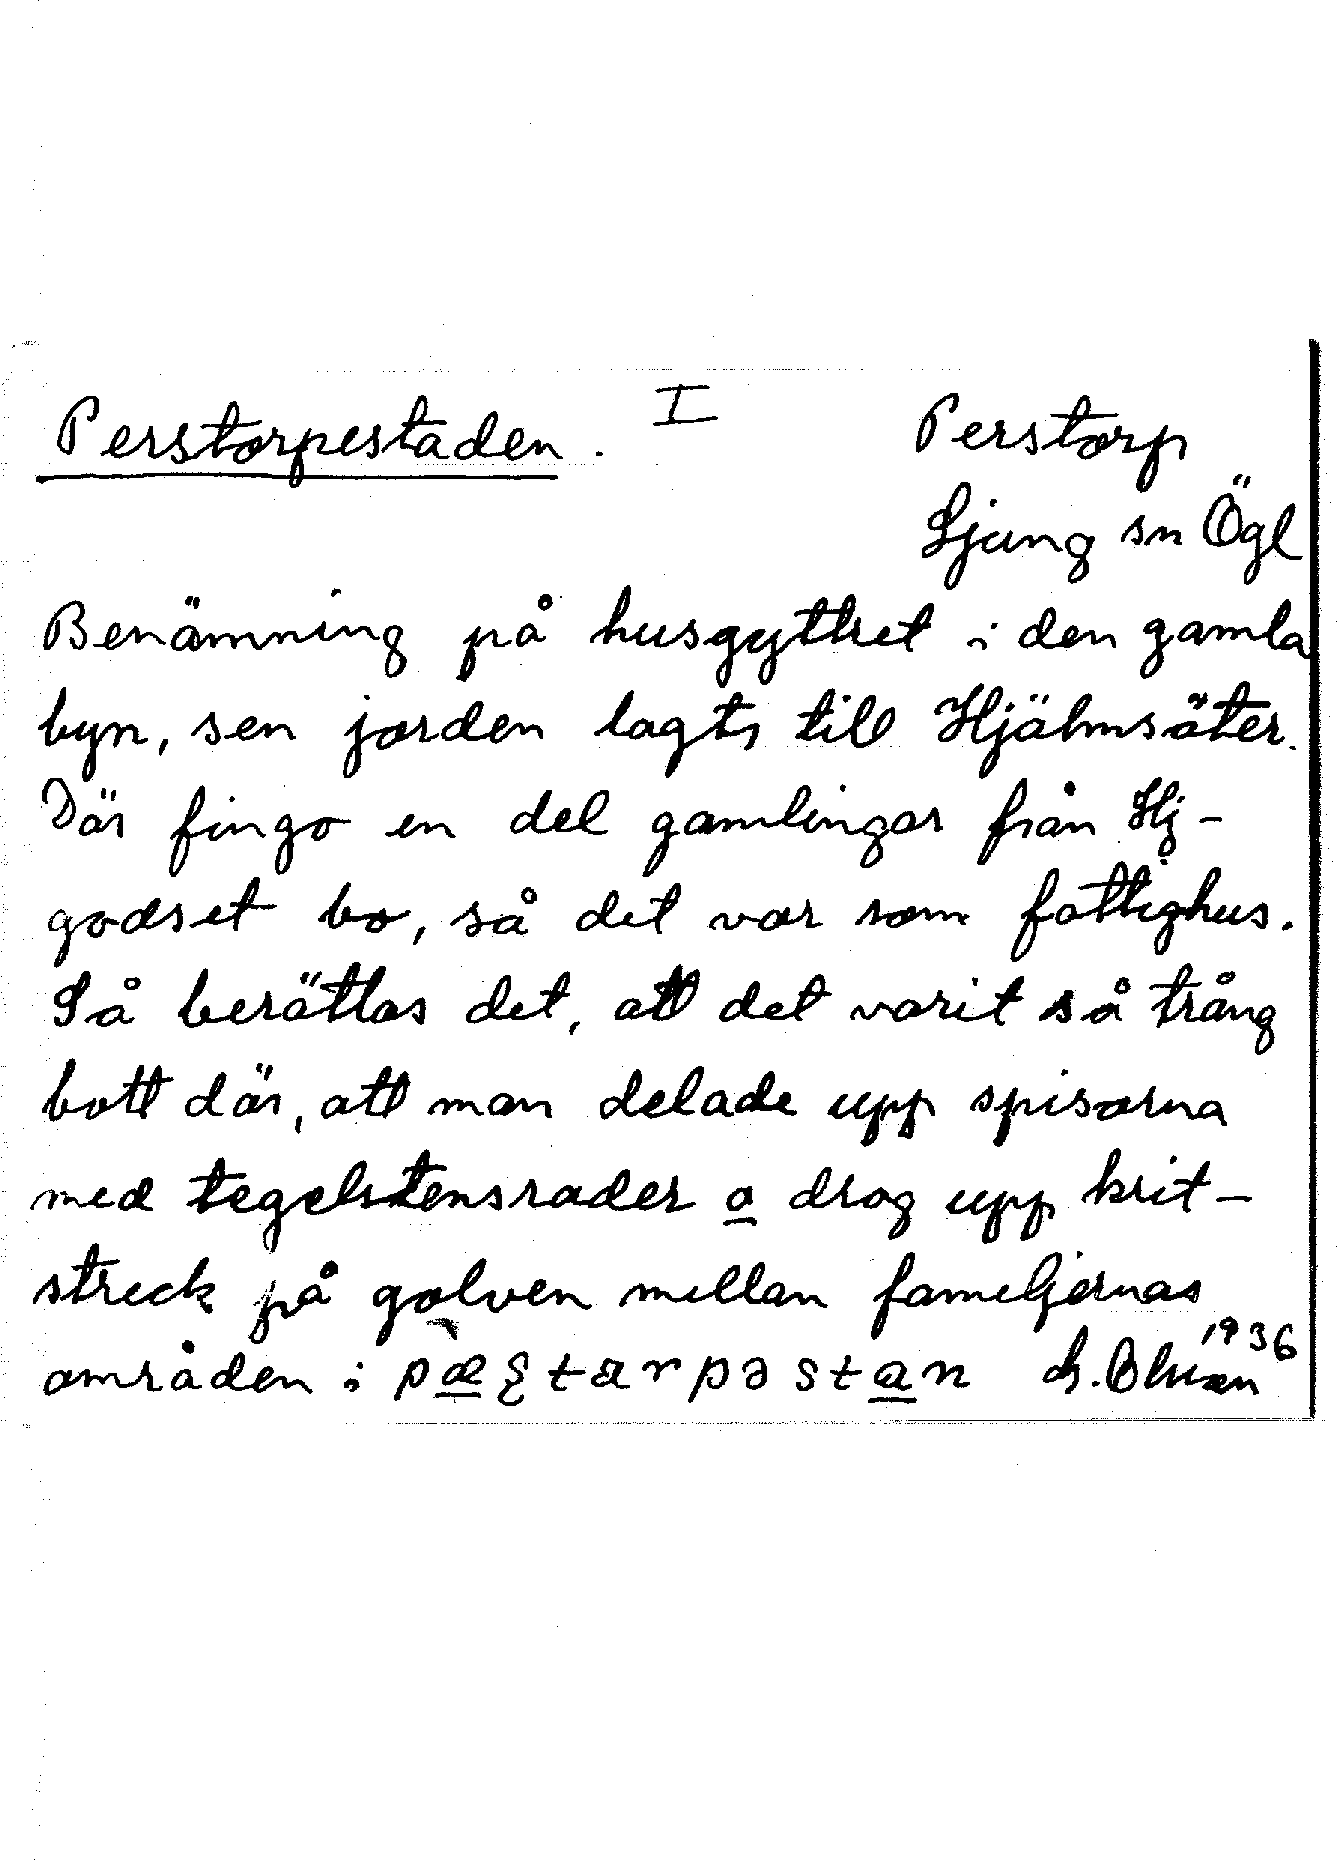 Perstorpestaden. I Perstorp
Ljung sn Ögl
Benämning på husgyttret i den gamla
byn, sen jorden lagts till Hjälmsäter.
Där fingo en del gamlingar från Hj-
godset bo, så det var som fattighus.
Så berättas det, att det varit så trång
bott där, att man delade upp spisarna
med tegelstensrader o drog upp krit-
streck på golven mellan fameljernas
områden i 1936